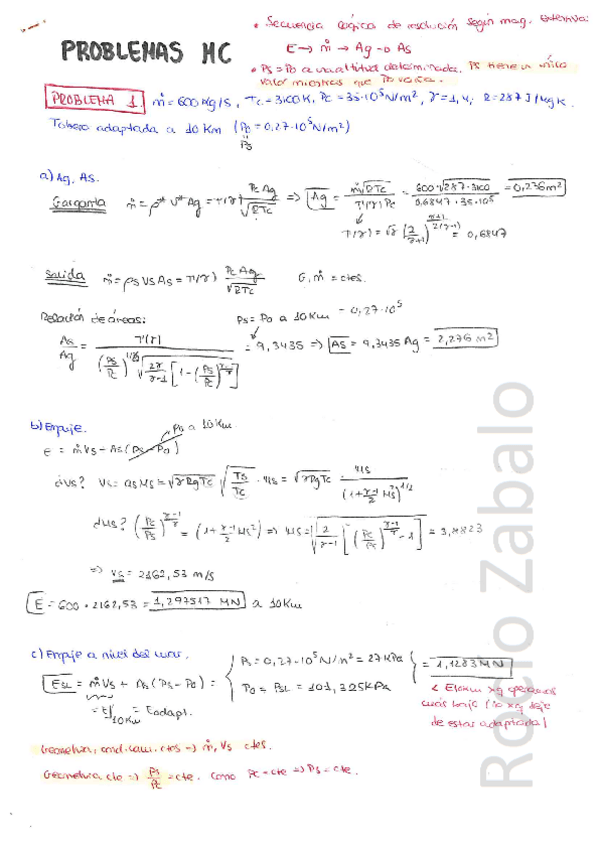 • Secuencia lógica de resolución según mag. extensiva:
E → ṁ → Ag → As
PROBLEMAS MC
• Ps = Po a una altitud determinada. Ps tiene un único
valor mientras que Po varía.
PROBLEMA 1. ṁ = 600 kg/s, Tc = 3100K, Pc = 35·10⁵ N/m², γ = 1,4; R = 287 J/kgK.
Tobera adaptada a 10 Km (Po = 0,27·10⁵ N/m²)
Ps
a) Ag, As.
Garganta ṁ = ρ* V* Ag = Γ(γ) Pc Ag / √RTc ⇒ Ag = ṁ√RTc / Γ(γ) Pc = 600·√287·3100 / 0,6847·35·10⁵ = 0,236 m²
Γ(γ) = √γ (2/γ+1)^(γ+1/2(γ-1)) = 0,6847
Salida ṁ = ρs Vs As = Γ(γ) Pc Ag / √RTc G, ṁ = ctes.
Relación de áreas: Ps = Po a 10 Km = 0,27·10⁵
As/Ag = Γ(γ) / (Ps/Pc)^(1/γ) √(2γ/γ-1 [1-(Ps/Pc)^(γ-1/γ)]) = 9,3435 ⇒ As = 9,3435 Ag = 2,276 m²
b) Empuje.
Po a 10 Km.
E = ṁVs + As(Ps-Po)
¿Vs? Vs = as Ms = √γRgTc √(Ts/Tc) · Ms = √γRgTc · Ms / (1+γ-1/2 Ms²)^(1/2)
¿Ms? (Pc/Ps)^(γ-1/γ) = (1+γ-1/2 Ms²) ⇒ Ms = √(2/γ-1 [(Pc/Ps)^(γ-1/γ) - 1]) =
⇒ Vs = 2162,53 m/s
E = 600 · 2162,53 = 1,297517 MN a 10 Km
c) Empuje a nivel del mar.
ESL = ṁVs + As(Ps-Po) = { Ps = 0,27·10⁵ N/m² = 27 KPa } = 1,1283 MN
Po = PSL = 101,325 KPa
= E|10Km = Eadapt.
< E10km xq operamos
más bajo (lo xq deja
de estar adaptada)
Geometría, cond. cam. ctes → ṁ, Vs ctes.
Geometría cte ⇒ Ps/Pc = cte. Como Pc = cte ⇒ Ps = cte.
Rocío Zabalo